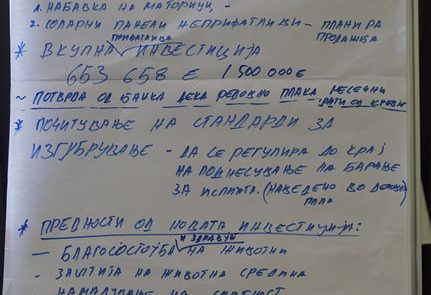 1. НАБАВКА НА МАТОРИЦИ -
2. СОЛАРНИ ПАНЕЛИ НЕПРИФАТЛИВИ - ПЛАНИРА ПРОДАЖБА
ПРИФАТЛИВА
* ВКУПНА ИНВЕСТИЦИЈА
653 658 € 1 500 000 €
~ ПОТВРДА ОД БАНКА ДЕКА РЕДОВНО ПЛАЌА МЕСЕЧНИ
РАТИ ОД КРЕДИТ
* ПОЧИТУВАЊЕ НА СТАНДАРДИ ЗА
ИЗГУБРУВАЊЕ - ДА СЕ РЕГУЛИРА ДО КРАЈ
НА ПОДНЕСУВАЊЕ НА БАРАЊЕ
ЗА ИСПЛАТА. (НАВЕДЕНО ВО
* ПРЕДНОСТИ ОД НОВАТА ИНВЕСТИЦИЈА:
И ЗДРАВЈЕ
- БЛАГОСОСТОЈБА НА ЖИВОТНИ
- ЗАШТИТА НА ЖИВОТНА СРЕДИНА
НАМАЛУВАЊЕ НА СМРТНОСТ